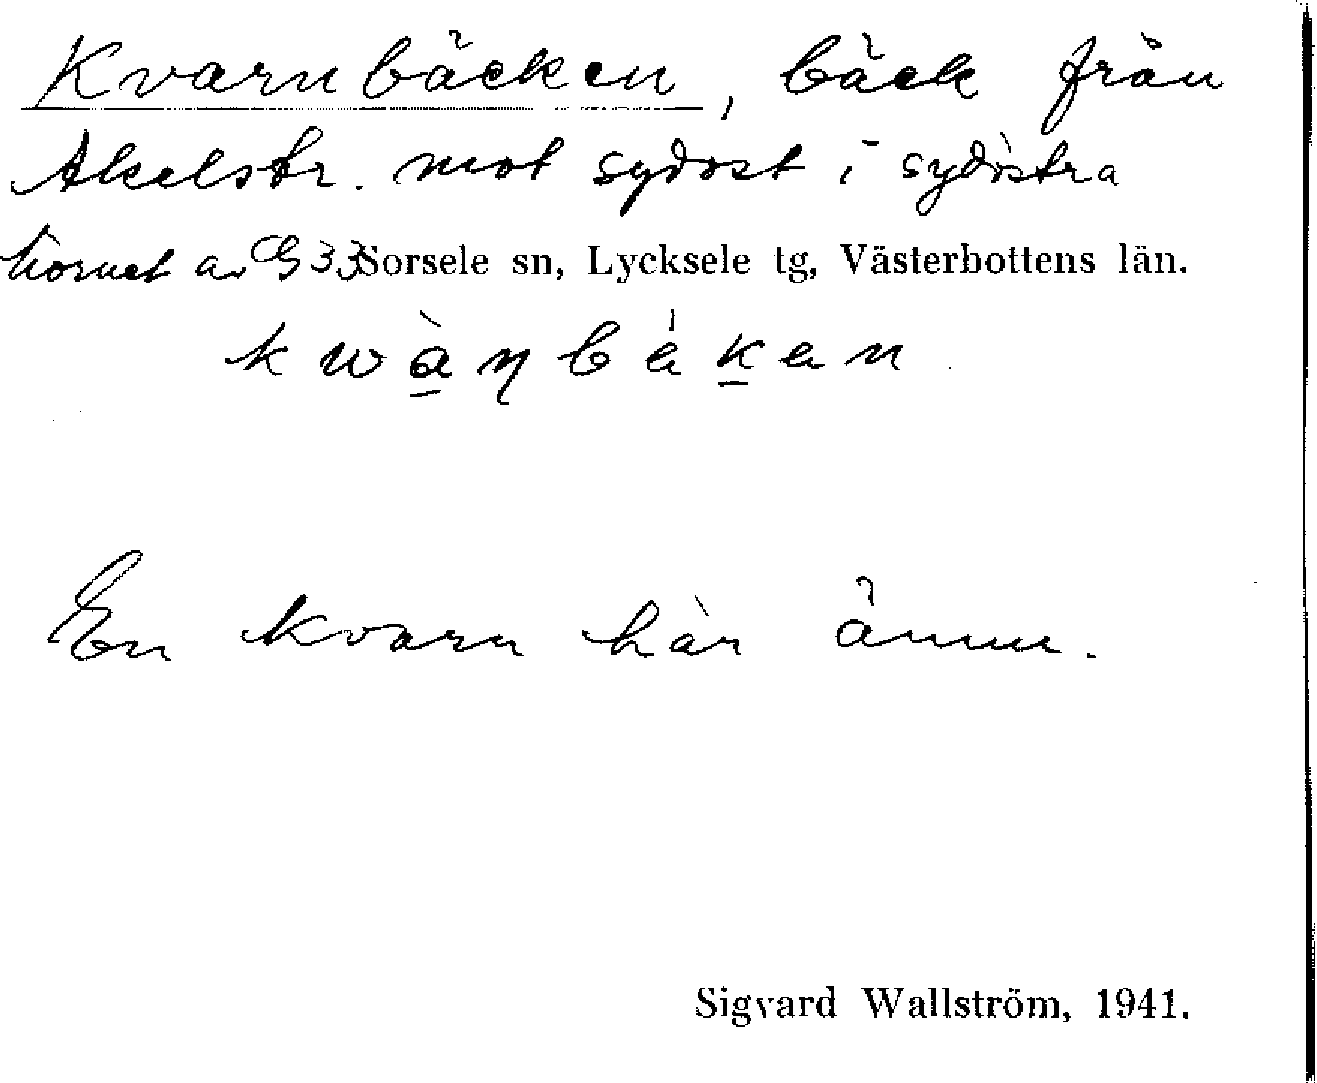 Kvarnbäcken, bäck från
Akelstr. mot sydost i sydöstra
hörnet av G 33 Sorsele sn, Lycksele tg, Västerbottens län.
En kvarn här ännu.
Sigvard Wallström, 1941.